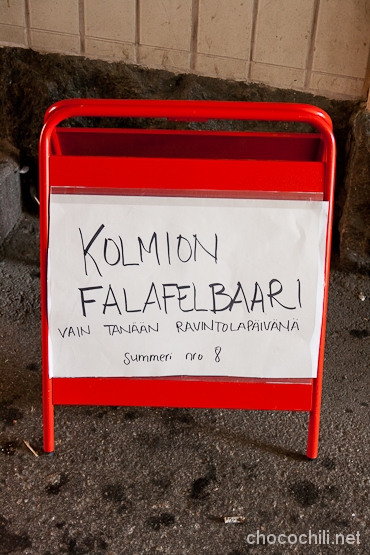 KOLMION
FALAFELBAARI
VAIN TÄNÄÄN RAVINTOLAPÄIVÄNÄ
Summeri nro 8
chocochili.net